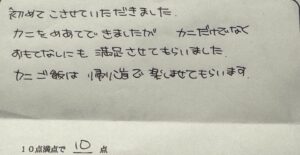 初めてこさせていただきました。
カニをめあてできましたが カニだけでなく
おもてなしにも 満足させてもらいました。
カニご飯は 帰り道で 楽しませてもらいます。
10点満点で 10 点